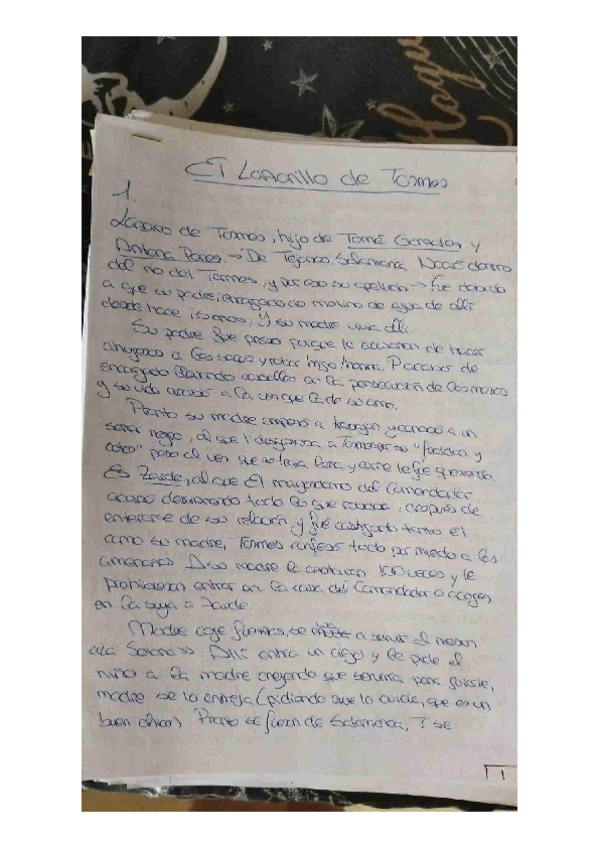 El Lazarillo de Tormes
1.
Lázaro de Tormes, hijo de Tomé González y
Antona Pérez. → De Tejares, Salamanca. Nació dentro
del río del Tormes, y por eso su apellido → fue debido
a que su padre, encargado de molino de agua de allí
desde hace 15 años, y su madre vivía allí.
Su padre fue preso porque le acusaron de hacer
a los sacos y
encargado en la persecución de los moros
y su vida acabó a la vez que la de su amo.
Pronto su madre empezó a trabajar y conoció a un
señor negro, al que a Tormes por su "fealdad y
pero al ver que les traía pan y carne le fue queriendo.
Es Zaide, al que el mayordomo del Comendador
acabó todo lo que robaba, después de
enterarse de su relación, y fue castigado tanto el
como su madre, Tormes confesó todo por miedo a las
amenazas. A su madre la 100 veces y le
prohibieron entrar en la casa del Comendador o acoger
en la suya a Zaide.
Madre coge fuerzas, se mete a servir al meson
de la Solana >> Allí entra un ciego y le pide el
niño a la madre creyendo que serviría para guiarle,
madre se lo entrega (pidiendo que lo cuide, que es un
buen chico). Pronto se fueron de Salamanca, y se
1